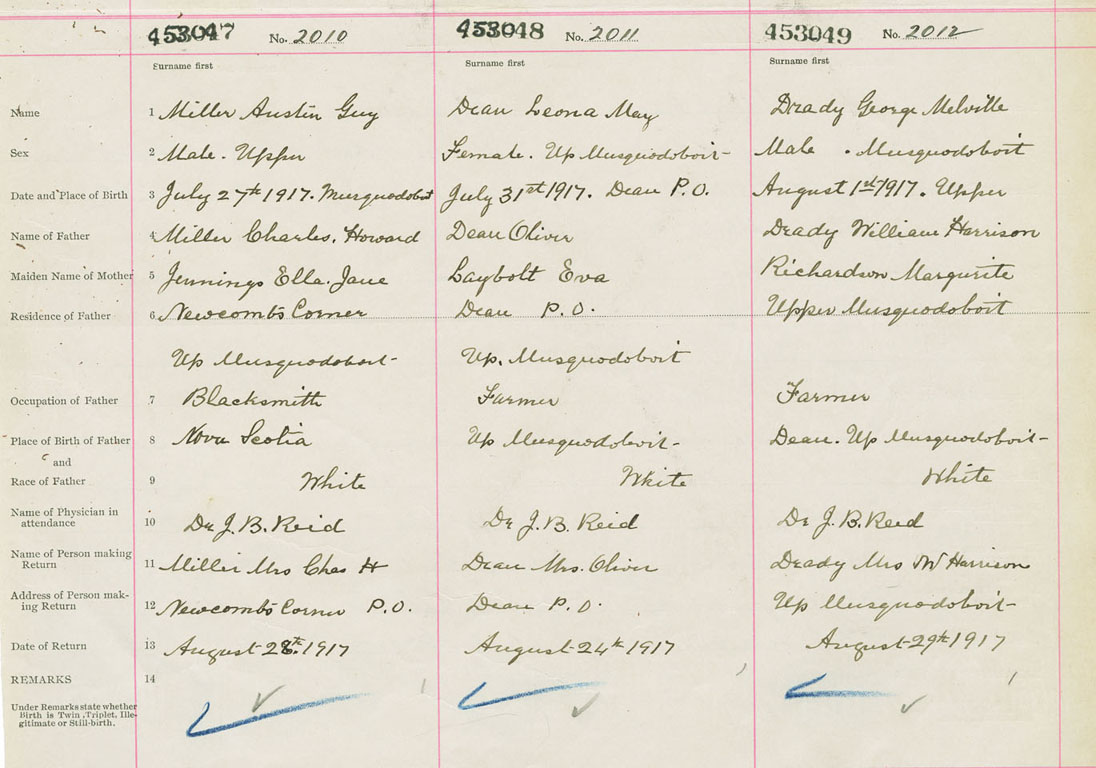 453047 No. 2010 453048 No. 2011 453049 No. 2012
Surname first Surname first Surname first
Name 1 Miller Austin Guy Dean Leona May Drady George Melville
Sex 2 Male. Upper Female. Up Musquodoboit Male . Musquodoboit
Date and Place of Birth 3 July 27th 1917. Musquodoboit July 31st 1917. Dean P.O. August 1st 1917. Upper
Name of Father 4 Miller Charles. Howard Dean Oliver Drady William Harrison
Maiden Name of Mother 5 Jennings Ella. Jane Laybolt Eva Richardson Margurite
Residence of Father 6 Newcombs Corner Dean P.O. Upper Musquodoboit
Up Musquodoboit Up. Musquodoboit
Occupation of Father 7 Blacksmith Farmer Farmer
Place of Birth of Father 8 Nova Scotia Up Musquodoboit Dean. Up Musquodoboit
and
Race of Father 9 White White White
Name of Physician in
attendance 10 Dr J. B. Reid Dr J. B. Reid Dr J. B. Reid
Name of Person making
Return 11 Miller Mrs Chas H Dean Mrs. Oliver Drady Mrs W Harrison
Address of Person mak-
ing Return 12 Newcombs Corner P.O. Dean P.O. Up Musquodoboit
Date of Return 13 August 28th. 1917 August 24th 1917 August 29th 1917
REMARKS 14
Under Remarks state whether
Birth is Twin, Triplet, Ille-
gitimate or Still-birth.